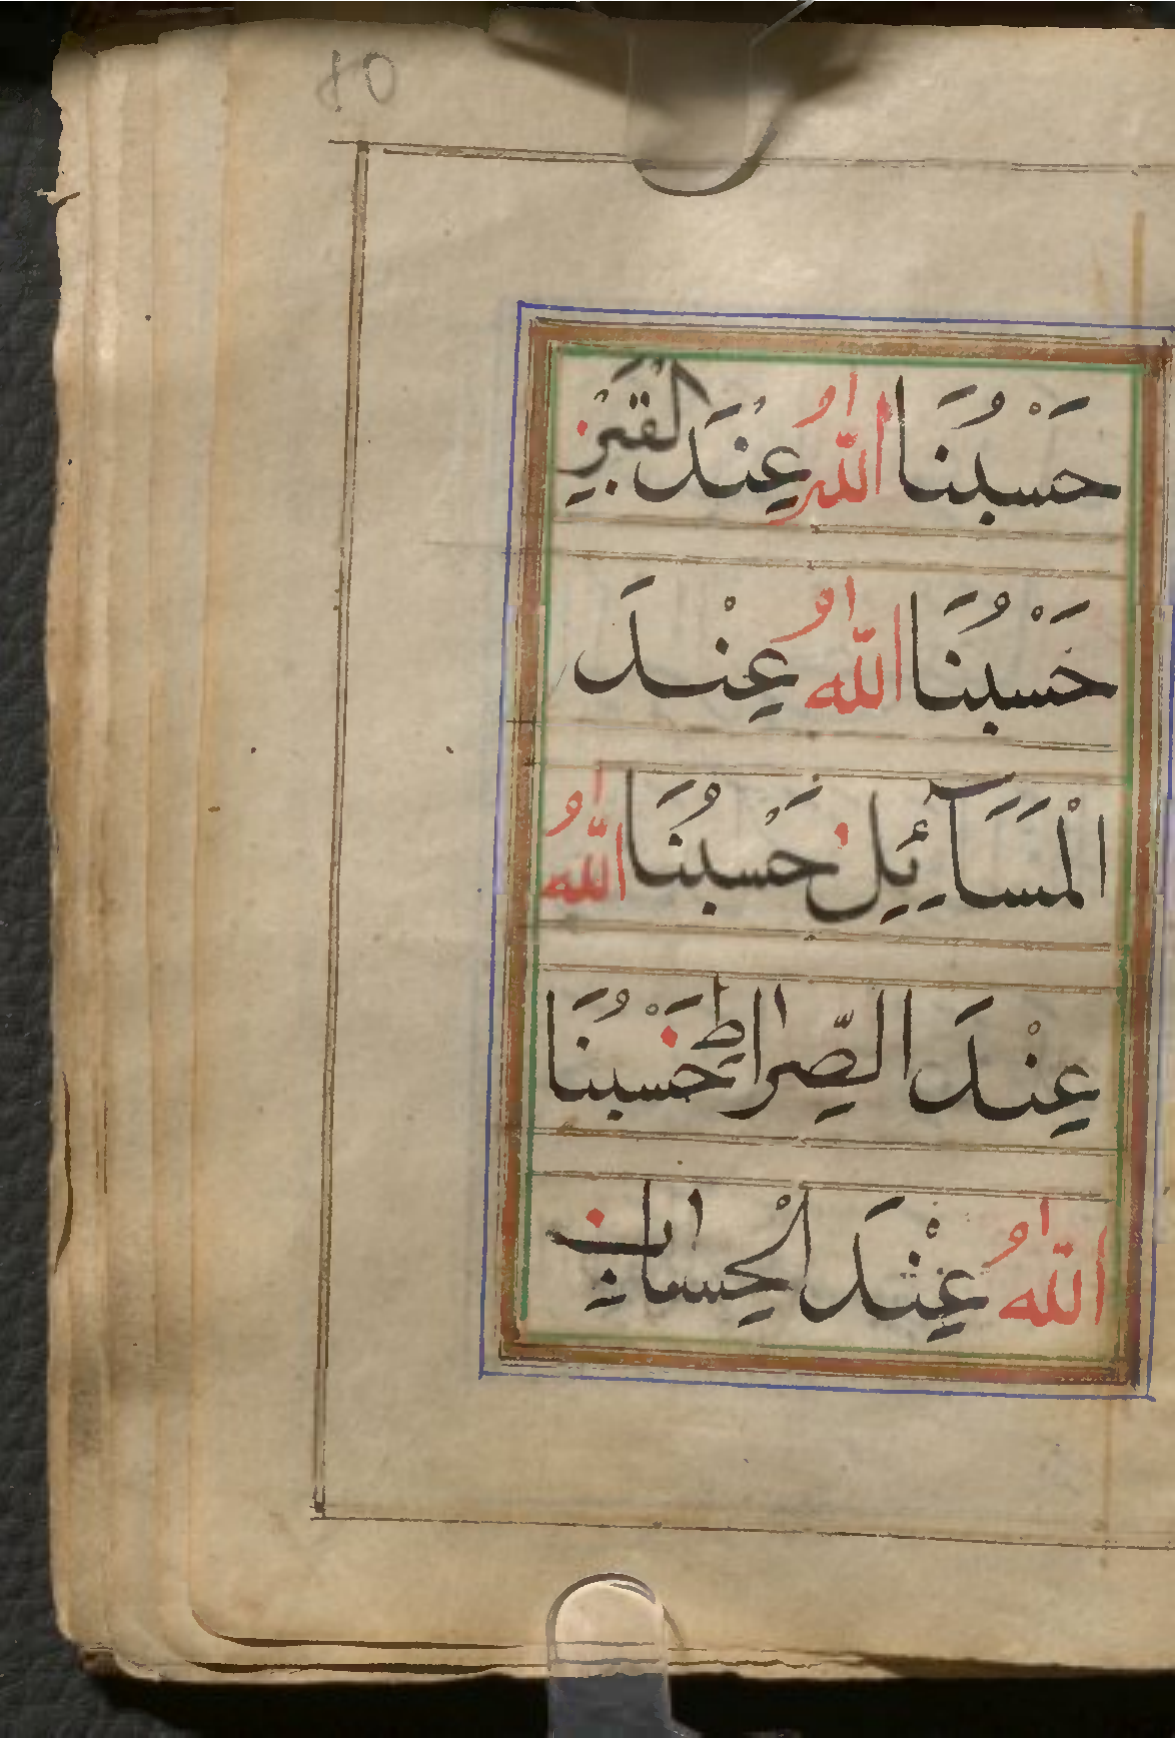 حَسْبُنَا اللّٰهُ عِنْدَ الْقَبْرِ
حَسْبُنَا اللّٰهُ عِنْدَ
الْمَسَآئِلِ حَسْبُنَا اللّٰهُ
عِنْدَ الصِّرٰاطِ حَسْبُنَا
اللّٰهُ عِنْدَ الْحِسٰابِ